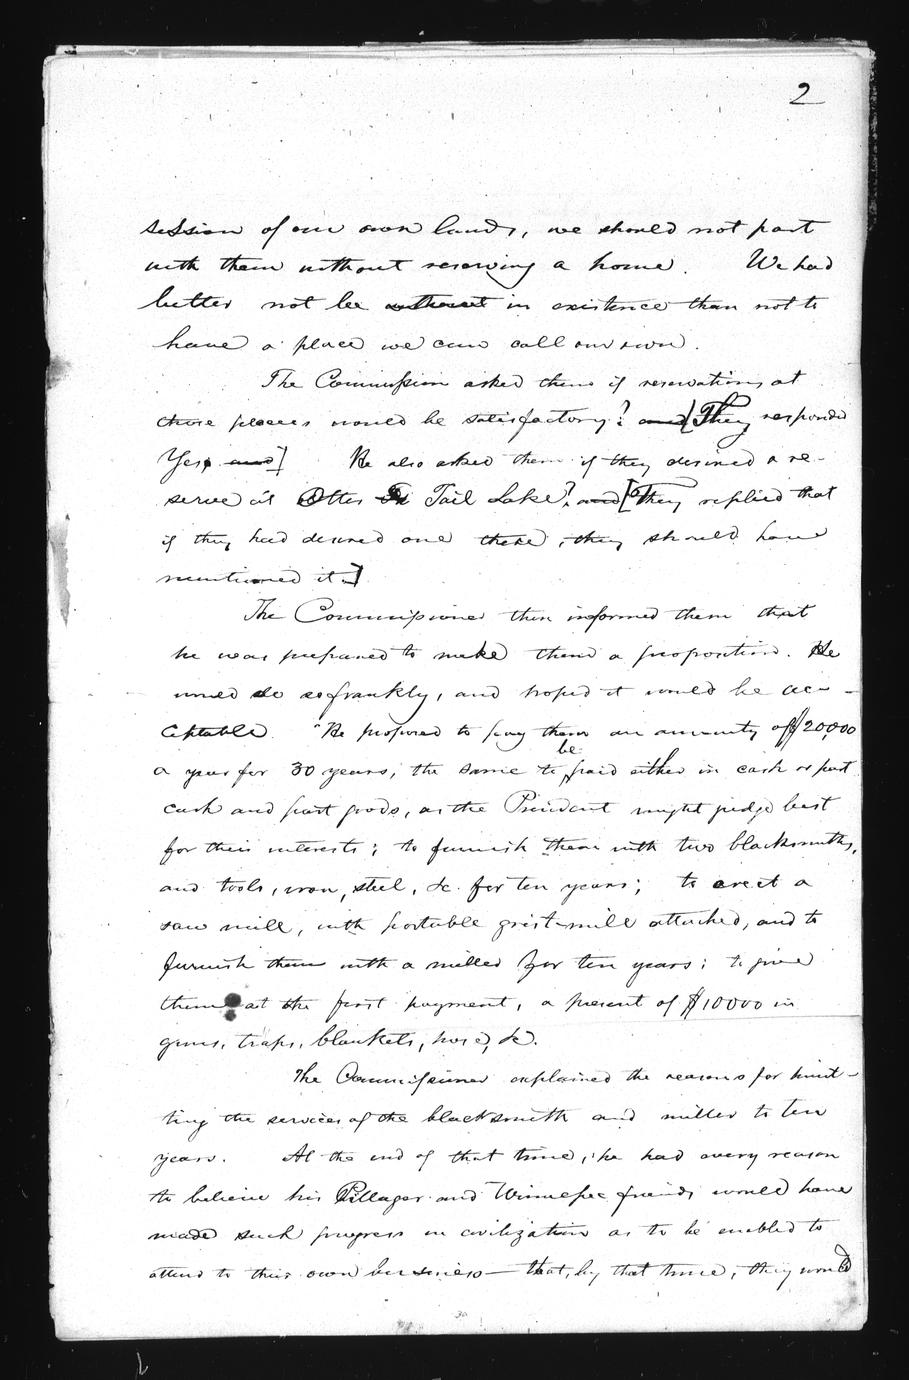 2
session of our own lands, we should not part
with them without reserving a home. We had
better not be without in existence than not to
have a place we can call our own.
The Commission asked them if reservations at
those places would be satisfactory? and [They responded
Yes, and] He also asked them if they desired a re-
serve at Otter Ta Tail Lake? and [They replied that
if they had desired one there, they should have
mentioned it.]
The Commissioner then informed them that
he was prepared to make them a proposition. He
would do so frankly, and hoped it would be acc-
eptable. "He proposed to pay them an annuity of $20,000
a year for 30 years; the same to be paid either in cash or part
cash and part goods, as the President might judge best
for their interests; to furnish them with two blacksmiths,
and tools, iron, steel, &c. for ten years; to erect a
saw mill, with portable grist-mill attached, and to
furnish them with a miller for ten years; to give
them at the first payment, a present of $10000 in
guns, traps, blankets, hose, &c.
The Commissioner explained the reasons for limit-
ting the services of the blacksmith and miller to ten
years. At the end of that time, he had every reason
to believe his Pillager and Winnepec friends would have
made such progress in civilization as to be enabled to
attend to their own business — that, by that time, they would